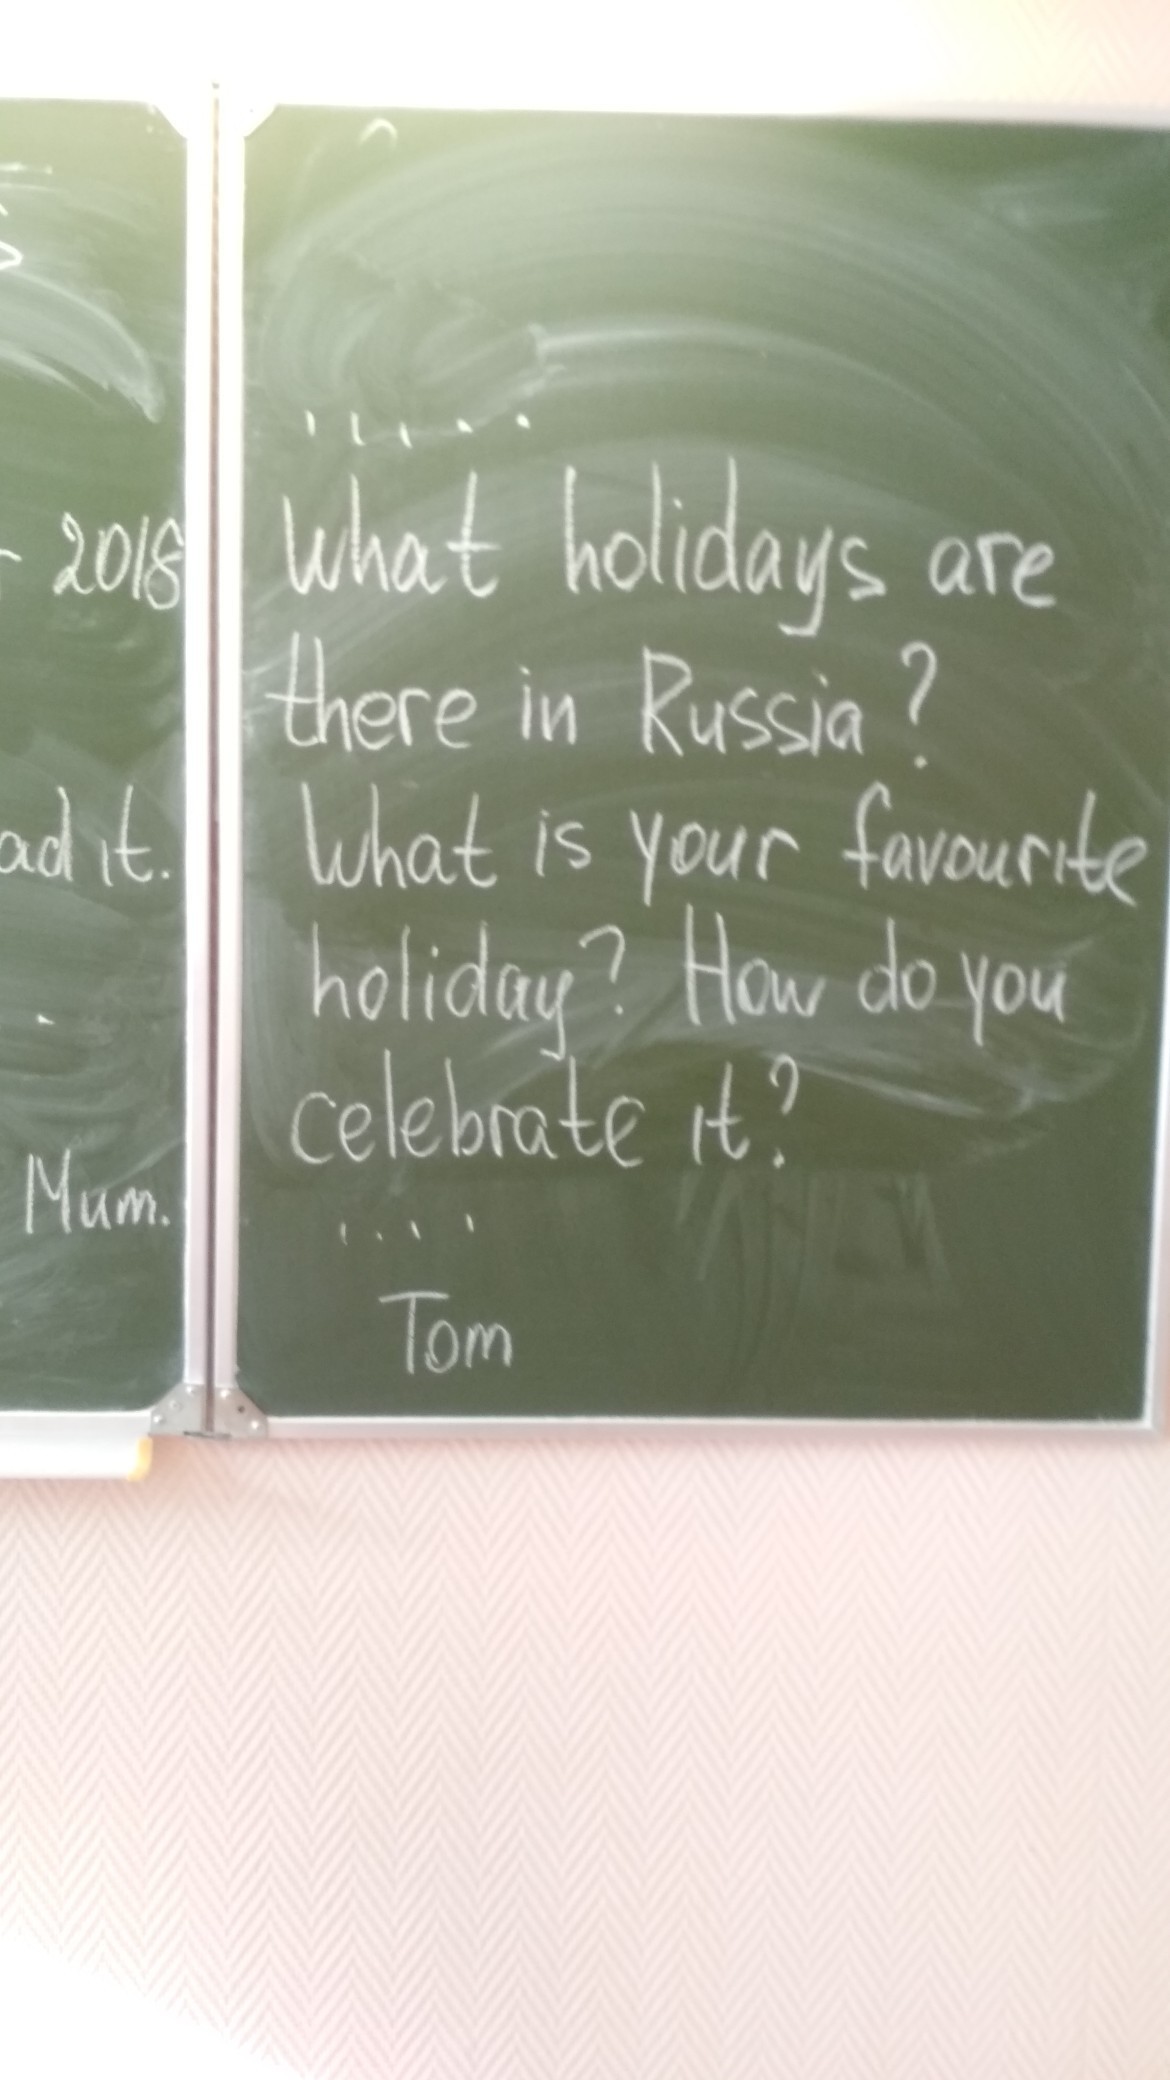 2018
ad it.
Mum.
.....
What holidays are
there in Russia?
What is your favourite
holiday? How do you
celebrate it?
....
Tom